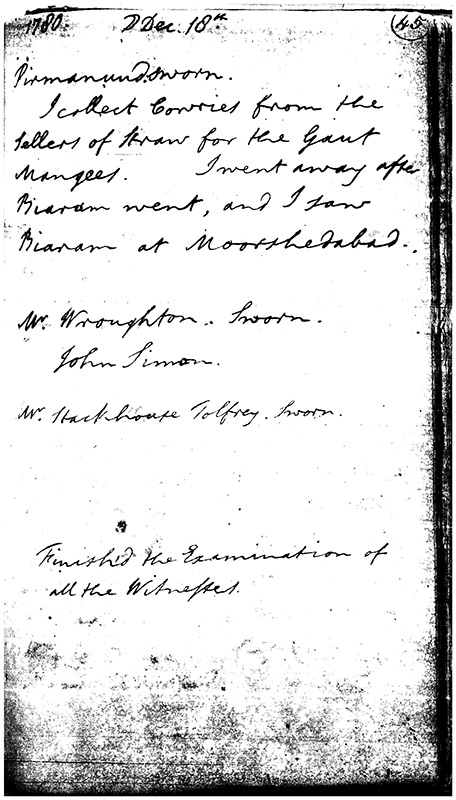 1780. D Dec. 18th 45
Pirmanund. sworn.
I collect Cowries from the
Sellers of Straw for the Gaut
Mangees. I went away after
Biaram went, and I saw
Biaram at Moorshedabad.
Mr. Wroughton. Sworn.
John Simon.
Mr. Stackhouse Tolfrey. Sworn.
Finish'd the Examination of
all the Witnesses.